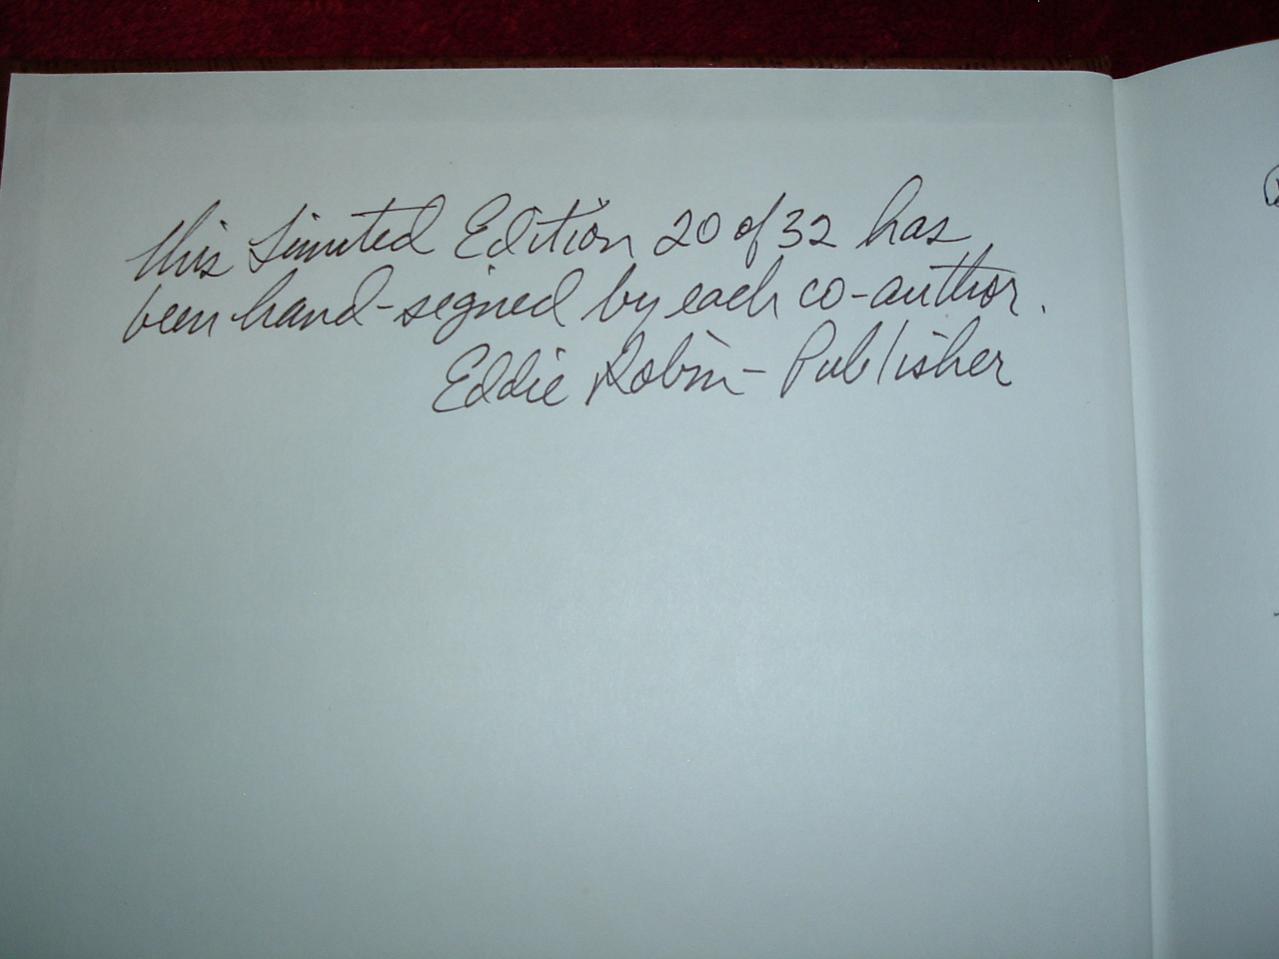 this Limited Edition 20 of 32 has
been hand-signed by each co-author.
Eddie Robin - Publisher